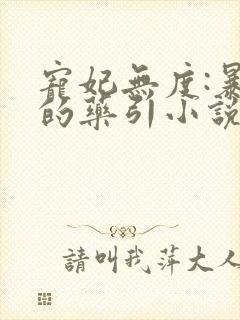 寵妃無度:暴
的藥引小說
請叫我萍大人